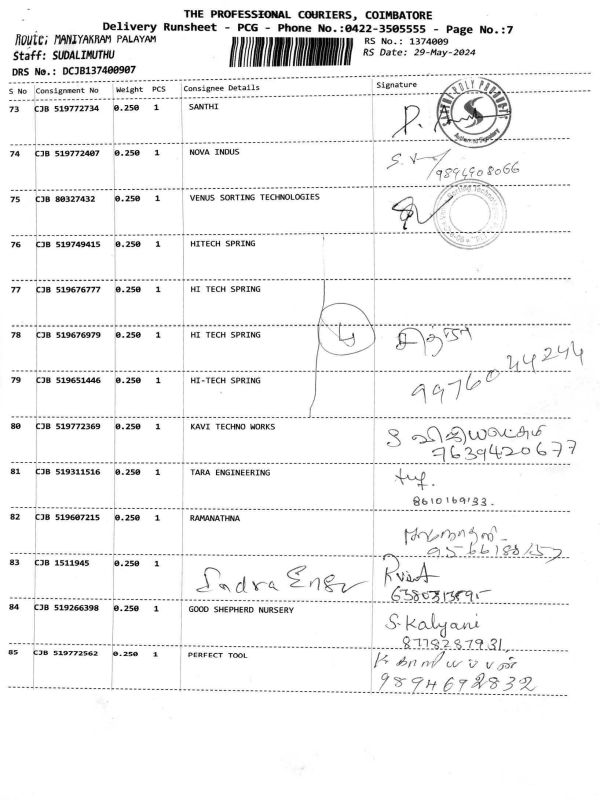 THE PROFESSIONAL COURIERS, COIMBATORE
Delivery Runsheet - PCG - Phone No.:0422-3505555 - Page No.:7
Route: MANIYAKRAM PALAYAM
RS No.: 1374009
Staff: SUDALIMUTHU
RS Date: 29-May-2024
DRS No.: DCJB137400907
S No Consignment No Weight PCS Consignee Details Signature
73 CJB 519772734 0.250 1 SANTHI
74 CJB 519772407 0.250 1 NOVA INDUS
9894908066
75 CJB 80327432 0.250 1 VENUS SORTING TECHNOLOGIES
76 CJB 519749415 0.250 1 HITECH SPRING
77 CJB 519676777 0.250 1 HI TECH SPRING
78 CJB 519676979 0.250 1 HI TECH SPRING 4 சித்ரா
79 CJB 519651446 0.250 1 HI-TECH SPRING 9976044244
80 CJB 519772369 0.250 1 KAVI TECHNO WORKS
7639420677
81 CJB 519311516 0.250 1 TARA ENGINEERING
8610169133.
82 CJB 519607215 0.250 1 RAMANATHNA
83 CJB 1511945 0.250 1 Indra Engg
84 CJB 519266398 0.250 1 GOOD SHEPHERD NURSERY S. Kalyani
8778287931,
85 CJB 519772562 0.250 1 PERFECT TOOL
9894692832